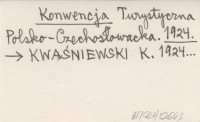 Konwencja Turystyczna
Polsko-Czechosłowacka. 1924.
→ KWAŚNIEWSKI K. 1924...